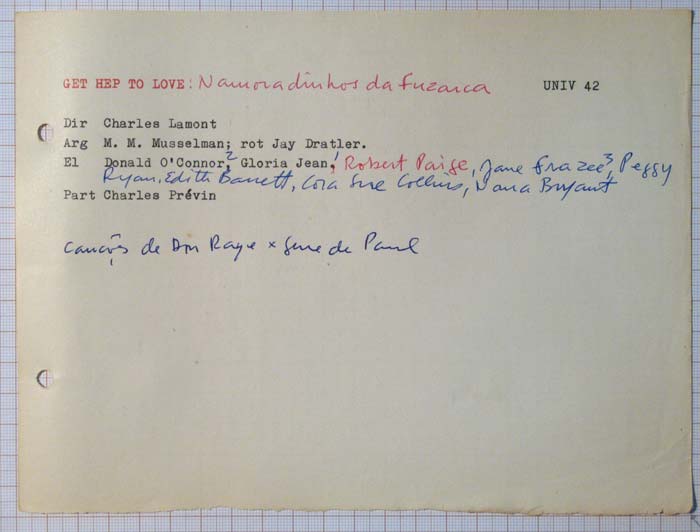 GET HEP TO LOVE: Namoradinhos da Fuzarca UNIV 42
Dir Charles Lamont
Arg M. M. Musselman; rot Jay Dratler.
El Donald O'Connor,2 Gloria Jean,1 Robert Paige, Jane Frazee3, Peggy
Ryan, Edith Barrett, Cora Sue Collins, Nana Bryant
Part Charles Prévin
canções de Don Raye x Gene de Paul